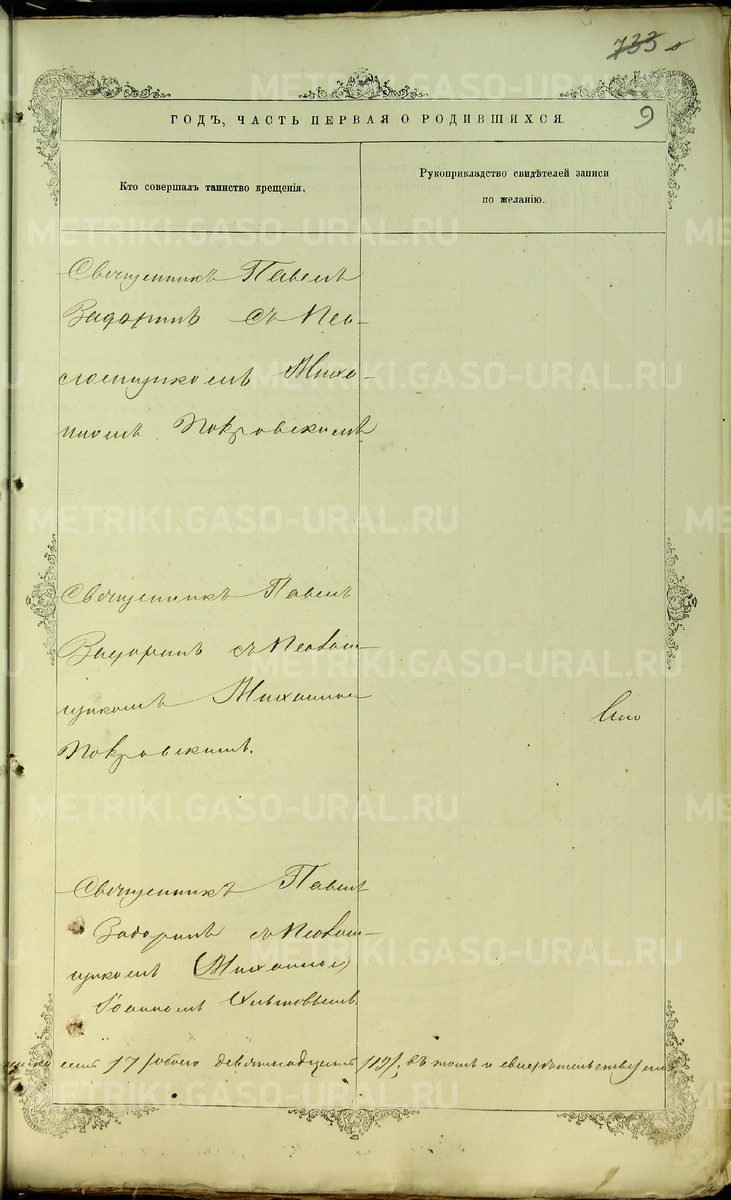 733
9
ГОДЪ, ЧАСТЬ ПЕРВАЯ О РОДИВШИХСЯ.
Кто совершалъ таинство крещенія.
Рукоприкладство свидѣтелей записи
по желанію.
Священникъ Павелъ
съ Пса-
ломщикомъ Миха-
иломъ Покровскимъ
Священникъ Павелъ
съ Псалом-
щикомъ Михаиломъ
Покровскимъ.
Священникъ Павелъ
съ Псалом-
щикомъ (Михаиломъ)
Іоанномъ
17 обоего девятнадцать /19/, въ томъ и свидѣтельствуемъ
METRIKI.GASO-URAL.RU